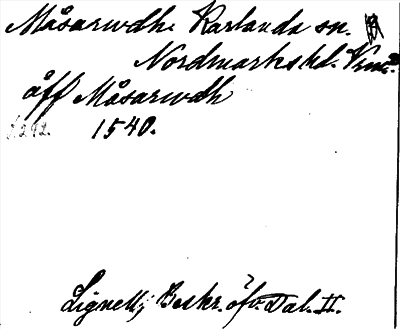 Måsarwdh. Karlanda sn.
Nordmarks hd. Vrml.
åff Måsarwdh
1540.
Lignell, Beskr. öfv. Dal. II.